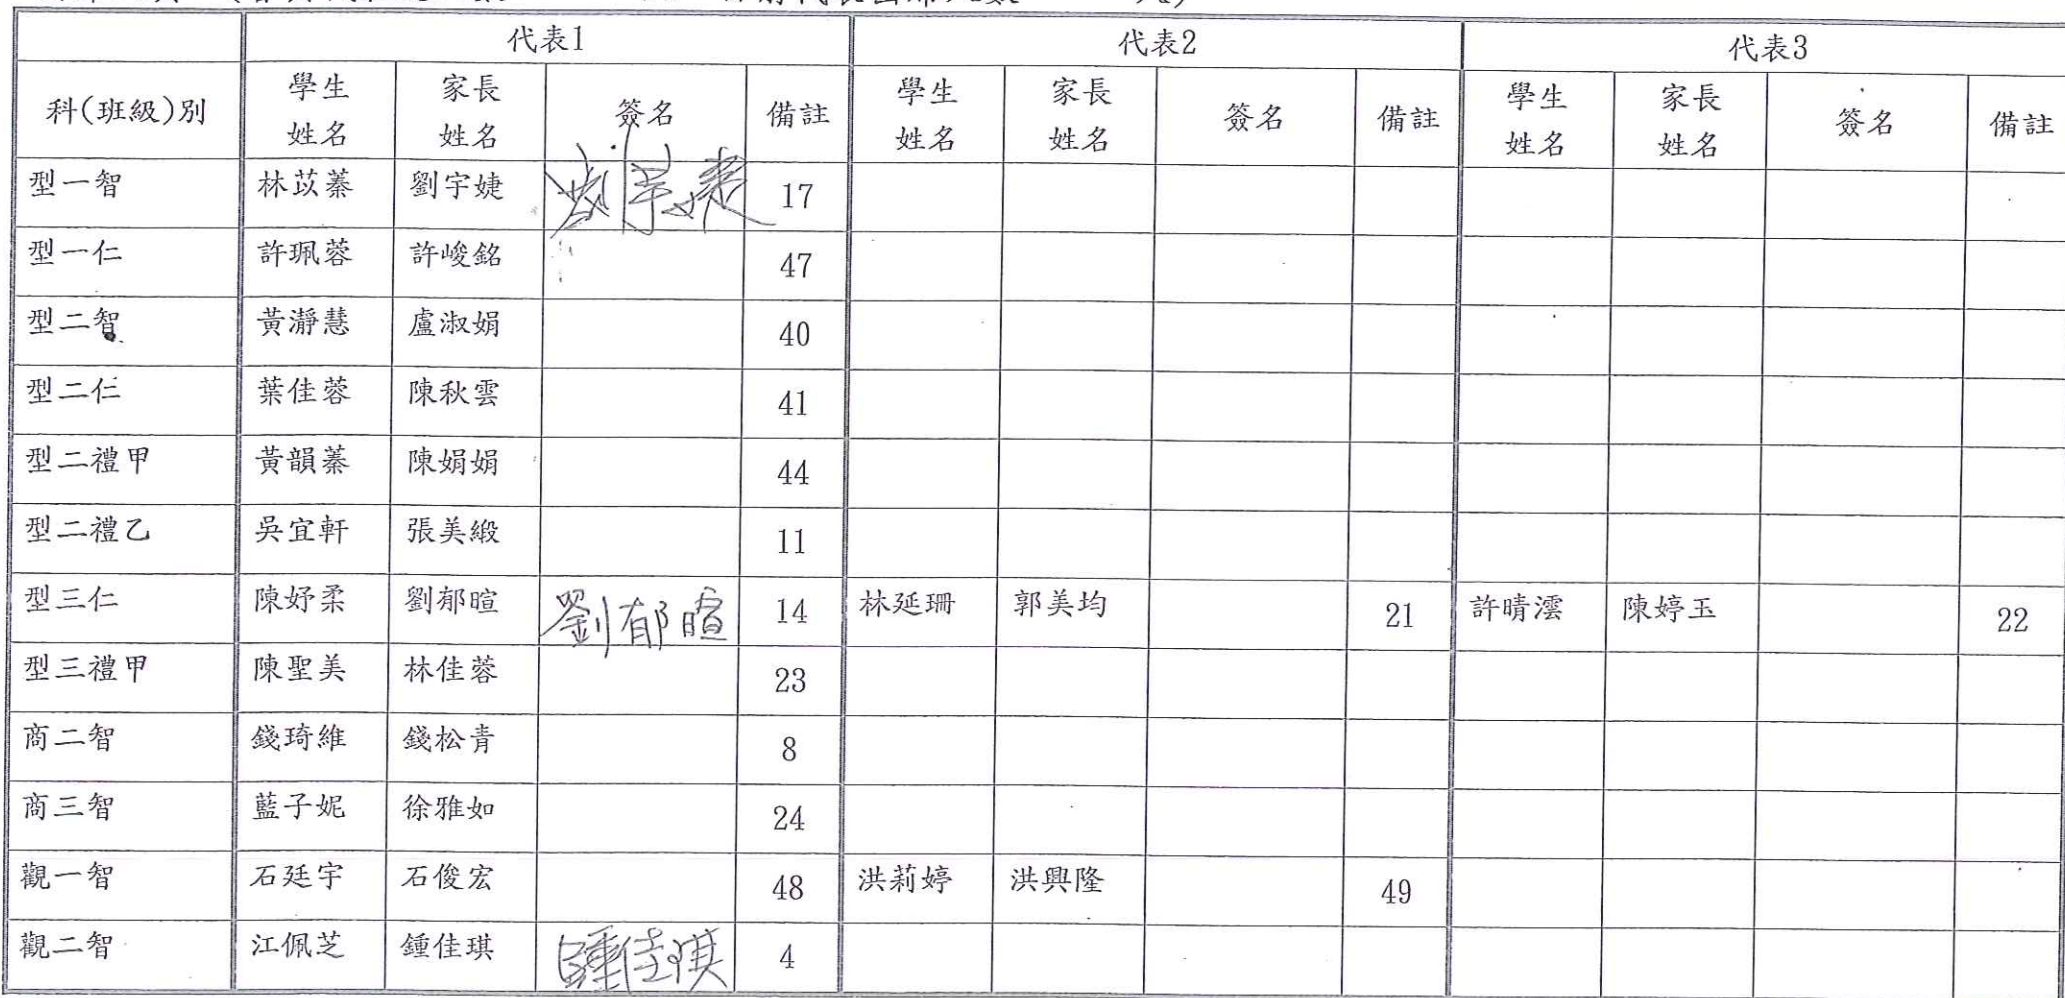 代表1 代表2 代表3
科(班級)別 學生姓名 家長姓名 簽名 備註 學生姓名 家長姓名 簽名 備註 學生姓名 家長姓名 簽名 備註
型一智 林苡蓁 劉宇婕 劉宇婕 17
型一仁 許珮蓉 許峻銘 47
型二智 黃瀞慧 盧淑娟 40
型二仁 葉佳蓉 陳秋雲 41
型二禮甲 黃韻蓁 陳娟娟 44
型二禮乙 吳宜軒 張美緞 11
型三仁 陳妤柔 劉郁暄 劉郁暄 14 林延珊 郭美均 21 許晴澐 陳婷玉 22
型三禮甲 陳聖美 林佳蓉 23
商二智 錢琦維 錢松青 8
商三智 藍子妮 徐雅如 24
觀一智 石廷宇 石俊宏 48 洪莉婷 洪興隆 49
觀二智 江佩芝 鍾佳琪 鍾佳琪 4